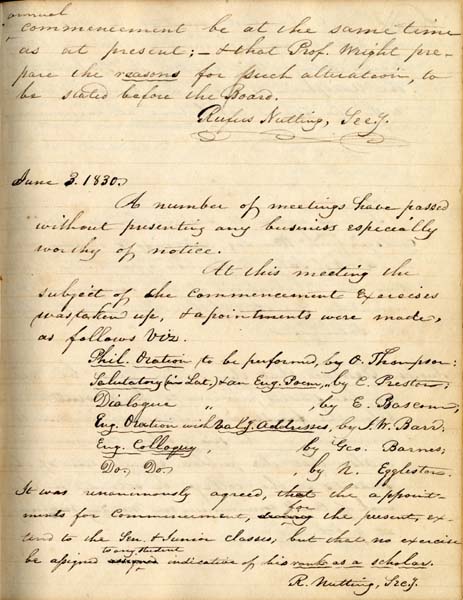 annual
commencement be at the same time
as at present; – & that Prof. Wright pre-
pare the reasons for such alteration, to
be stated before the Board.
Rufus Nutting, Secy.
June 3. 1830.
A number of meetings have passed
without presenting any business especially
worthy of notice.
At this meeting the
subject of the Commencement Exercises
was taken up, & apointments were made,
as follows Viz.
Phil. Oration to be performed, by O. Thompson:
Salutatory (in Lat.) & an Eng. Poem, „ by C. Preston;
Dialogue „ , by E. Bascom;
Eng. Oration with Val.y. Addresses, by J. W. Barr;
Eng. Colloquy , by Geo. Barnes;
Do. Do. , by N. Eggleston.
It was unanimously agreed, that the appoint-
for
ments for Commencement, during the present, ex-
tend to the Sen. & Junior classes; but that no exercise
to any student
be assigned assigned indicative of his rank as a scholar.
R. Nutting, Secy.